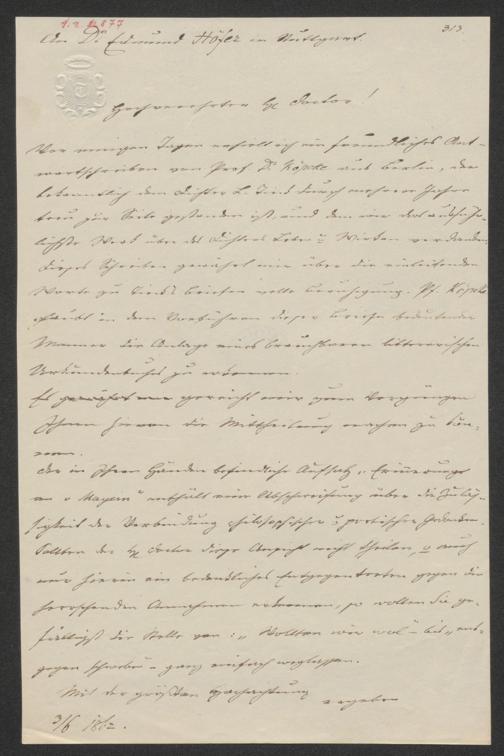 An Dr Edmund Höfer in Stuttgart.
313
Hochverehrter H Doctor!
Vor einigen Tagen erhielt ich ein freundliches Ant-
wortschreiben von Prof Dr Köpke aus Berlin, der
bekanntlich dem Dichter L. Tieck durch mehrere Jahre
treu zur Seite gestanden ist, und dem wir das ausführ-
lichste Werk über des Dichters Leben u Wirken verdanken.
Dieses Schreiben gewährt mir über die einleitenden
Worte zu Tieck's Briefen volle Beruhigung. Pf. Köpke
glaubt in dem Vorführen dieser Briefe bedeutender
Männer die Anlage eines brauchbaren litterarischen
Urkundenbuches zu erkennen.
Es gereicht mir zum Vergnügen
Ihnen hievon die Mittheilung machen zu kön-
nen.
Der in Ihren Händen befindliche Aufsatz „Erinnerung
an Mayern" enthält eine Abschweifung über die Zuläs-
sigkeit der Verbindung philosophischer u poetischer Gedanken.
Sollten der H Doctor diese Ansicht nicht theilen, u auch
nur hierin ein bedenkliches Entgegentreten gegen die
herrschenden Annahmen erkennen, so wollen Sie ge-
fälligst die Stelle von: „Wollten wir wol" – bis „ent-
gegen schweben" – ganz einfach weglassen.
Mit der größten Hochachtung
ergeben
3/6 1862.